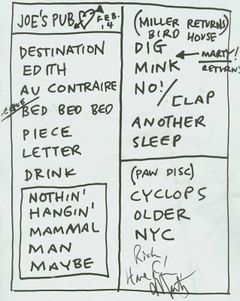 JOE'S PUB FEB. 14
DESTINATION
EDITH
AU CONTRAIRE
BED BED BED
PIECE
LETTER
DRINK
NOTHIN'
HANGIN'
MAMMAL
MAN
MAYBE
(MILLER RETURNS)
BIRD HOUSE)
DIG
MINK
MARTY!
RETURNS
NO! / CLAP
ANOTHER
SLEEP
(PAW DISC)
CYCLOPS
OLDER
NYC
Rich,